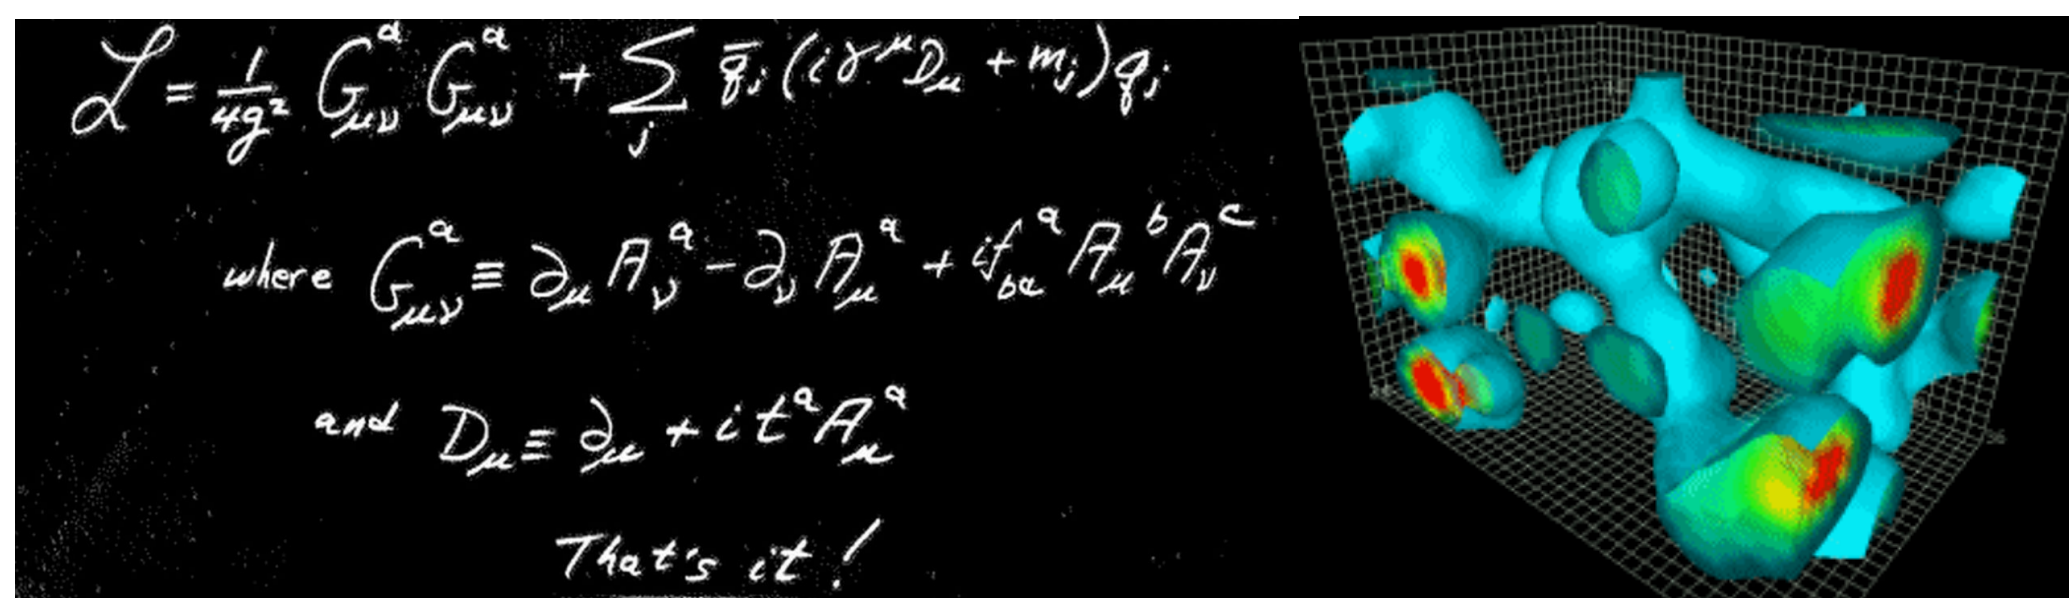 ℒ = 1/4g² G^a_μν G^a_μν + Σ_j q̄_j (iγ^μ D_μ + m_j) q_j
where G^a_μν ≡ ∂_μ A^a_ν - ∂_ν A^a_μ + if^a_bc A^b_μ A^c_ν
and D_μ ≡ ∂_μ + it^a A^a_μ
That's it!